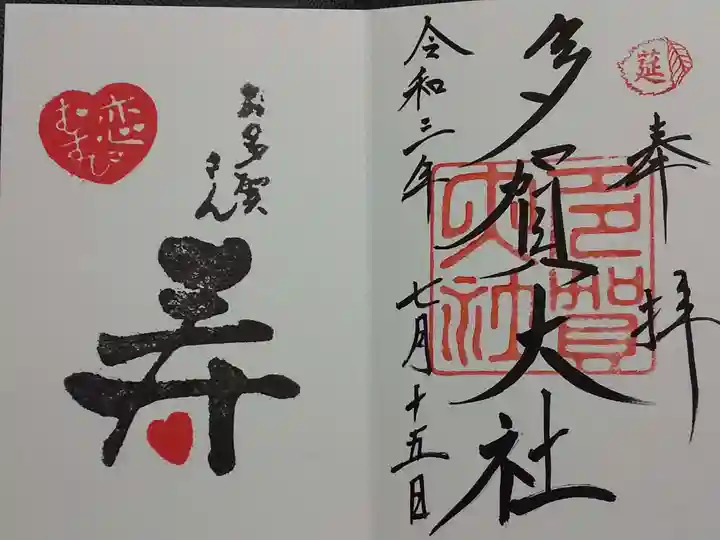 莚
奉拝
多賀大社
多賀大社
令和三年
七月十五日
お多賀さん
恋むすび
寿